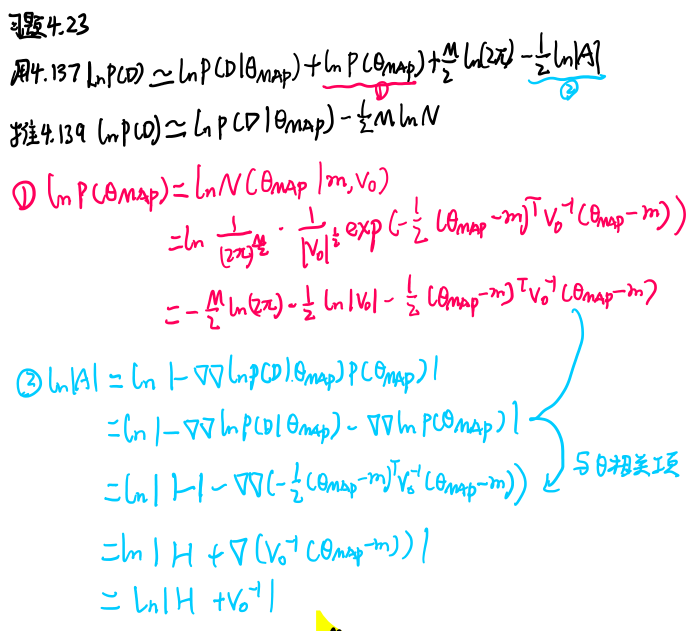 习题4.23
用4.137 ln P(D) ≃ ln P(D|θMAP) + ln P(θMAP) + M/2 ln(2π) - 1/2 ln|A|
① ②
推4.139 ln P(D) ≃ ln P(D|θMAP) - 1/2 M ln N
① ln P(θMAP) = ln N(θMAP | m, V₀)
= ln 1/(2π)^{M/2} · 1/|V₀|^{1/2} exp(-1/2 (θMAP - m)ᵀ V₀⁻¹ (θMAP - m))
= - M/2 ln(2π) - 1/2 ln|V₀| - 1/2 (θMAP - m)ᵀ V₀⁻¹ (θMAP - m)
② ln|A| = ln |-∇∇ ln P(D|θMAP) P(θMAP)|
= ln |-∇∇ ln P(D|θMAP) - ∇∇ ln P(θMAP)|
= ln | H - ∇∇(-1/2 (θMAP - m)ᵀ V₀⁻¹ (θMAP - m))|
与θ相关项
= ln | H + ∇(V₀⁻¹ (θMAP - m))|
= ln |H + V₀⁻¹|